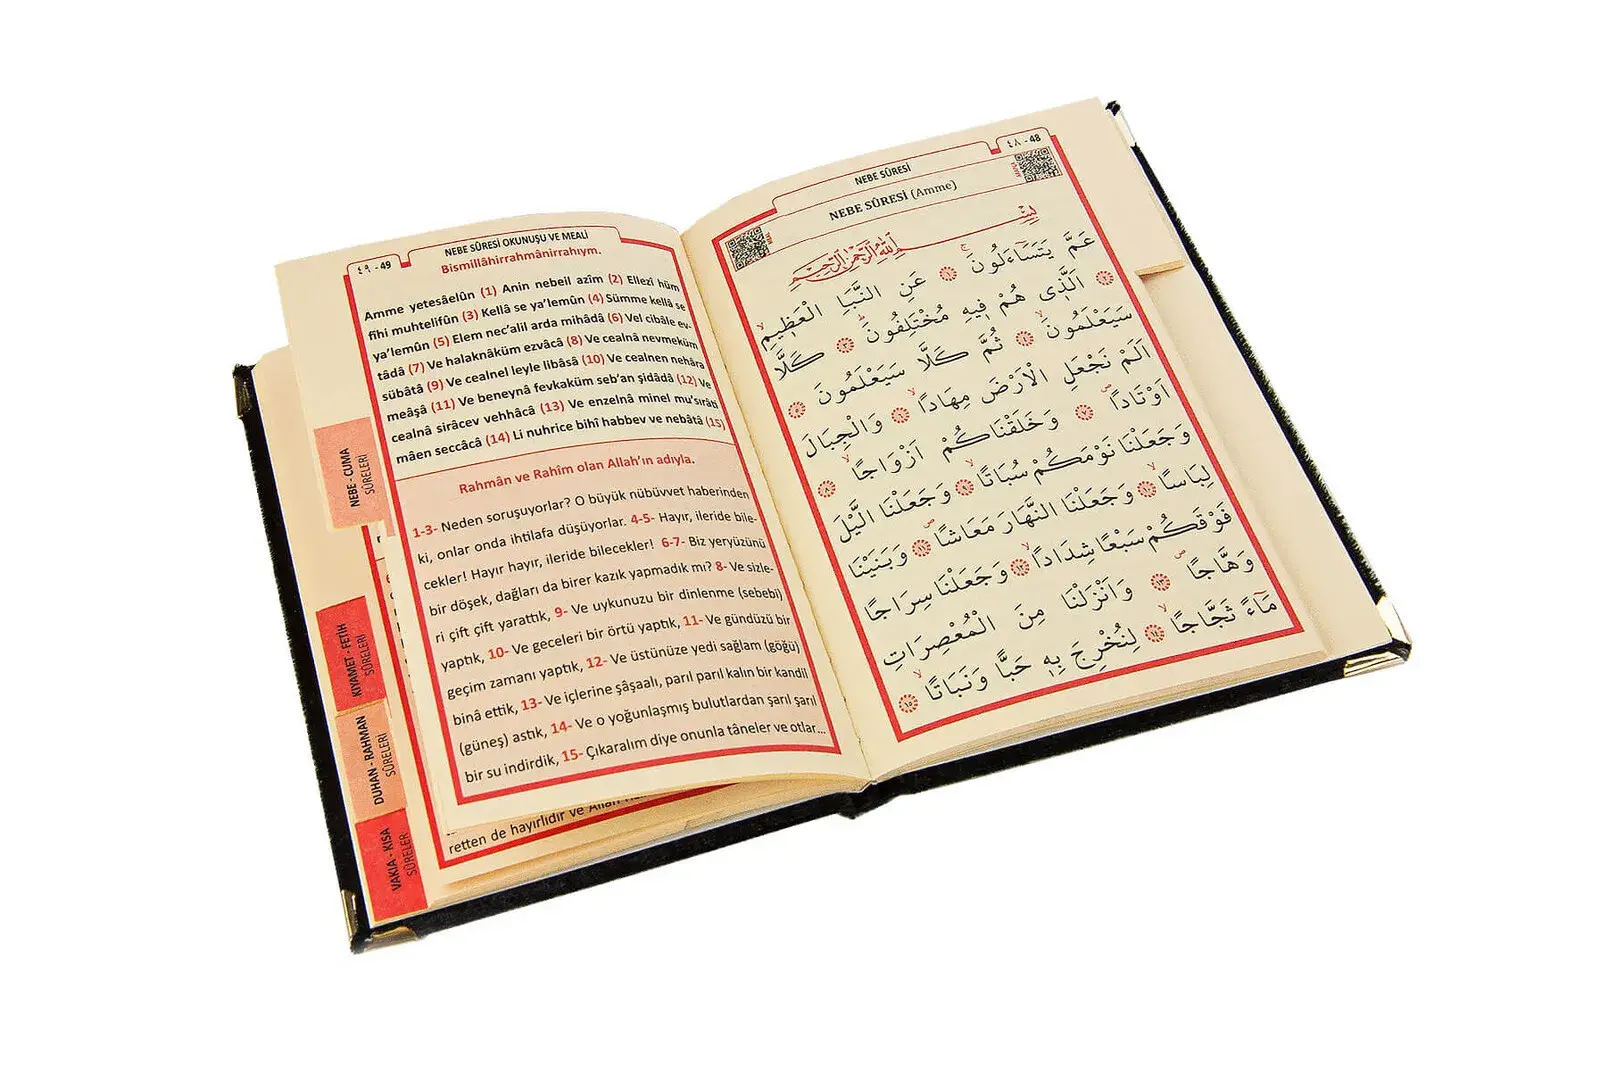 ٤٩ - 49
NEBE SÛRESİ OKUNUŞU VE MEALİ
Bismillâhirrahmânirrahıym.
Amme yetesâelûn (1) Anin nebeil azîm (2) Ellezî hüm
fîhi muhtelifûn (3) Kellâ se ya’lemûn (4) Sümme kellâ se
ya’lemûn (5) Elem nec’alil arda mihâdâ (6) Vel cibâle ev-
tâdâ (7) Ve halaknâküm ezvâcâ (8) Ve cealnâ nevmeküm
sübâtâ (9) Ve cealnel leyle libâsâ (10) Ve cealnen nehâra
meâşâ (11) Ve beneynâ fevkaküm seb’an şidâdâ (12) Ve
cealnâ sirâcev vehhâcâ (13) Ve enzelnâ minel mu’sırâti
mâen seccâcâ (14) Li nuhrice bihî habbev ve nebâtâ (15)
Rahmân ve Rahîm olan Allah’ın adıyla.
1-3- Neden soruşuyorlar? O büyük nübüvvet haberinden
ki, onlar onda ihtilafa düşüyorlar. 4-5- Hayır, ileride bile-
cekler! Hayır hayır, ileride bilecekler! 6-7- Biz yeryüzünü
bir döşek, dağları da birer kazık yapmadık mı? 8- Ve sizle-
ri çift çift yarattık, 9- Ve uykunuzu bir dinlenme (sebebi)
yaptık, 10- Ve geceleri bir örtü yaptık, 11- Ve gündüzü bir
geçim zamanı yaptık, 12- Ve üstünüze yedi sağlam (göğü)
binâ ettik, 13- Ve içlerine şâşaalı, parıl parıl kalın bir kandil
(güneş) astık, 14- Ve o yoğunlaşmış bulutlardan şarıl şarıl
bir su indirdik, 15- Çıkaralım diye onunla tâneler ve otlar...
retten de hayırlıdır ve Allah
NEBE - CUMA
SÛRELERİ
KIYAMET - FETİH
SÛRELERİ
DUHAN - RAHMAN
SÛRELERİ
VAKIA - KISA
SÛRELER
٤٨ - 48
NEBE SÛRESİ
NEBE SÛRESİ (Amme)
بِسْمِ اللّٰهِ الرَّحْمٰنِ الرَّحٖيمِ
عَمَّ يَتَسَٓاءَلُونَۚ ﴿١﴾ عَنِ النَّبَأِ الْعَظٖيمِۙ
﴿٢﴾ اَلَّذٖى هُمْ فٖيهِ مُخْتَلِفُونَۜ ﴿٣﴾ كَلَّا
سَيَعْلَمُونَۙ ﴿٤﴾ ثُمَّ كَلَّا سَيَعْلَمُونَ ﴿٥﴾
اَلَمْ نَجْعَلِ الْاَرْضَ مِهَادًاۙ ﴿٦﴾ وَالْجِبَالَ
اَوْتَادًاۖ ﴿٧﴾ وَخَلَقْنَاكُمْ اَزْوَاجًاۙ ﴿٨﴾
وَجَعَلْنَا نَوْمَكُمْ سُبَاتًاۙ ﴿٩﴾ وَجَعَلْنَا الَّيْلَ
لِبَاسًاۙ ﴿١٠﴾ وَجَعَلْنَا النَّهَارَ مَعَاشًاۖ ﴿١١﴾ وَبَنَيْنَا
فَوْقَكُمْ سَبْعًا شِدَادًاۙ ﴿١٢﴾ وَجَعَلْنَا سِرَاجًا
وَهَّاجًاۖ ﴿١٣﴾ وَاَنْزَلْنَا مِنَ الْمُعْصِرَاتِ
مَٓاءً ثَجَّاجًاۙ ﴿١٤﴾ لِنُخْرِجَ بِهٖ حَبًّا وَنَبَاتًاۙ ﴿١٥﴾